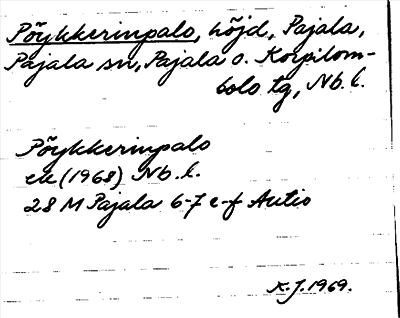 Pöykkerinpalo, höjd, Pajala,
Pajala sn, Pajala o. Korpilom-
bolo tg, Nb. l.
Pöykkerinpalo
ek (1968) Nb. l.
28 M Pajala 6-7 e-f Autio
K. J. 1969.